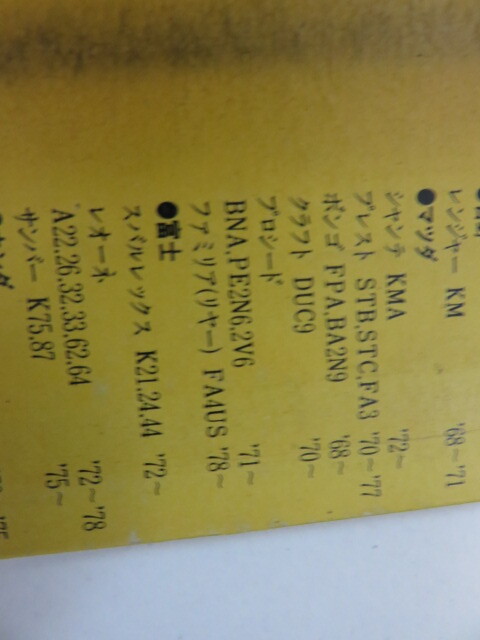 レンジャー KM '68~'71
●マツダ
シャンテ KMA '72~
プレスト STB.STC.FA3 '70~'77
ボンゴ FPA.BA2N9 '68~
クラフト DUC9 '70~
プロシード
BNA.PE2N6.2V6 '71~
ファミリア(リヤー) FA4US '78~
●富士
スバルレックス K21.24.44 '72~
レオーネ
A22.26.32.33.62.64 '72~'78
サンバー K75.87 '75~